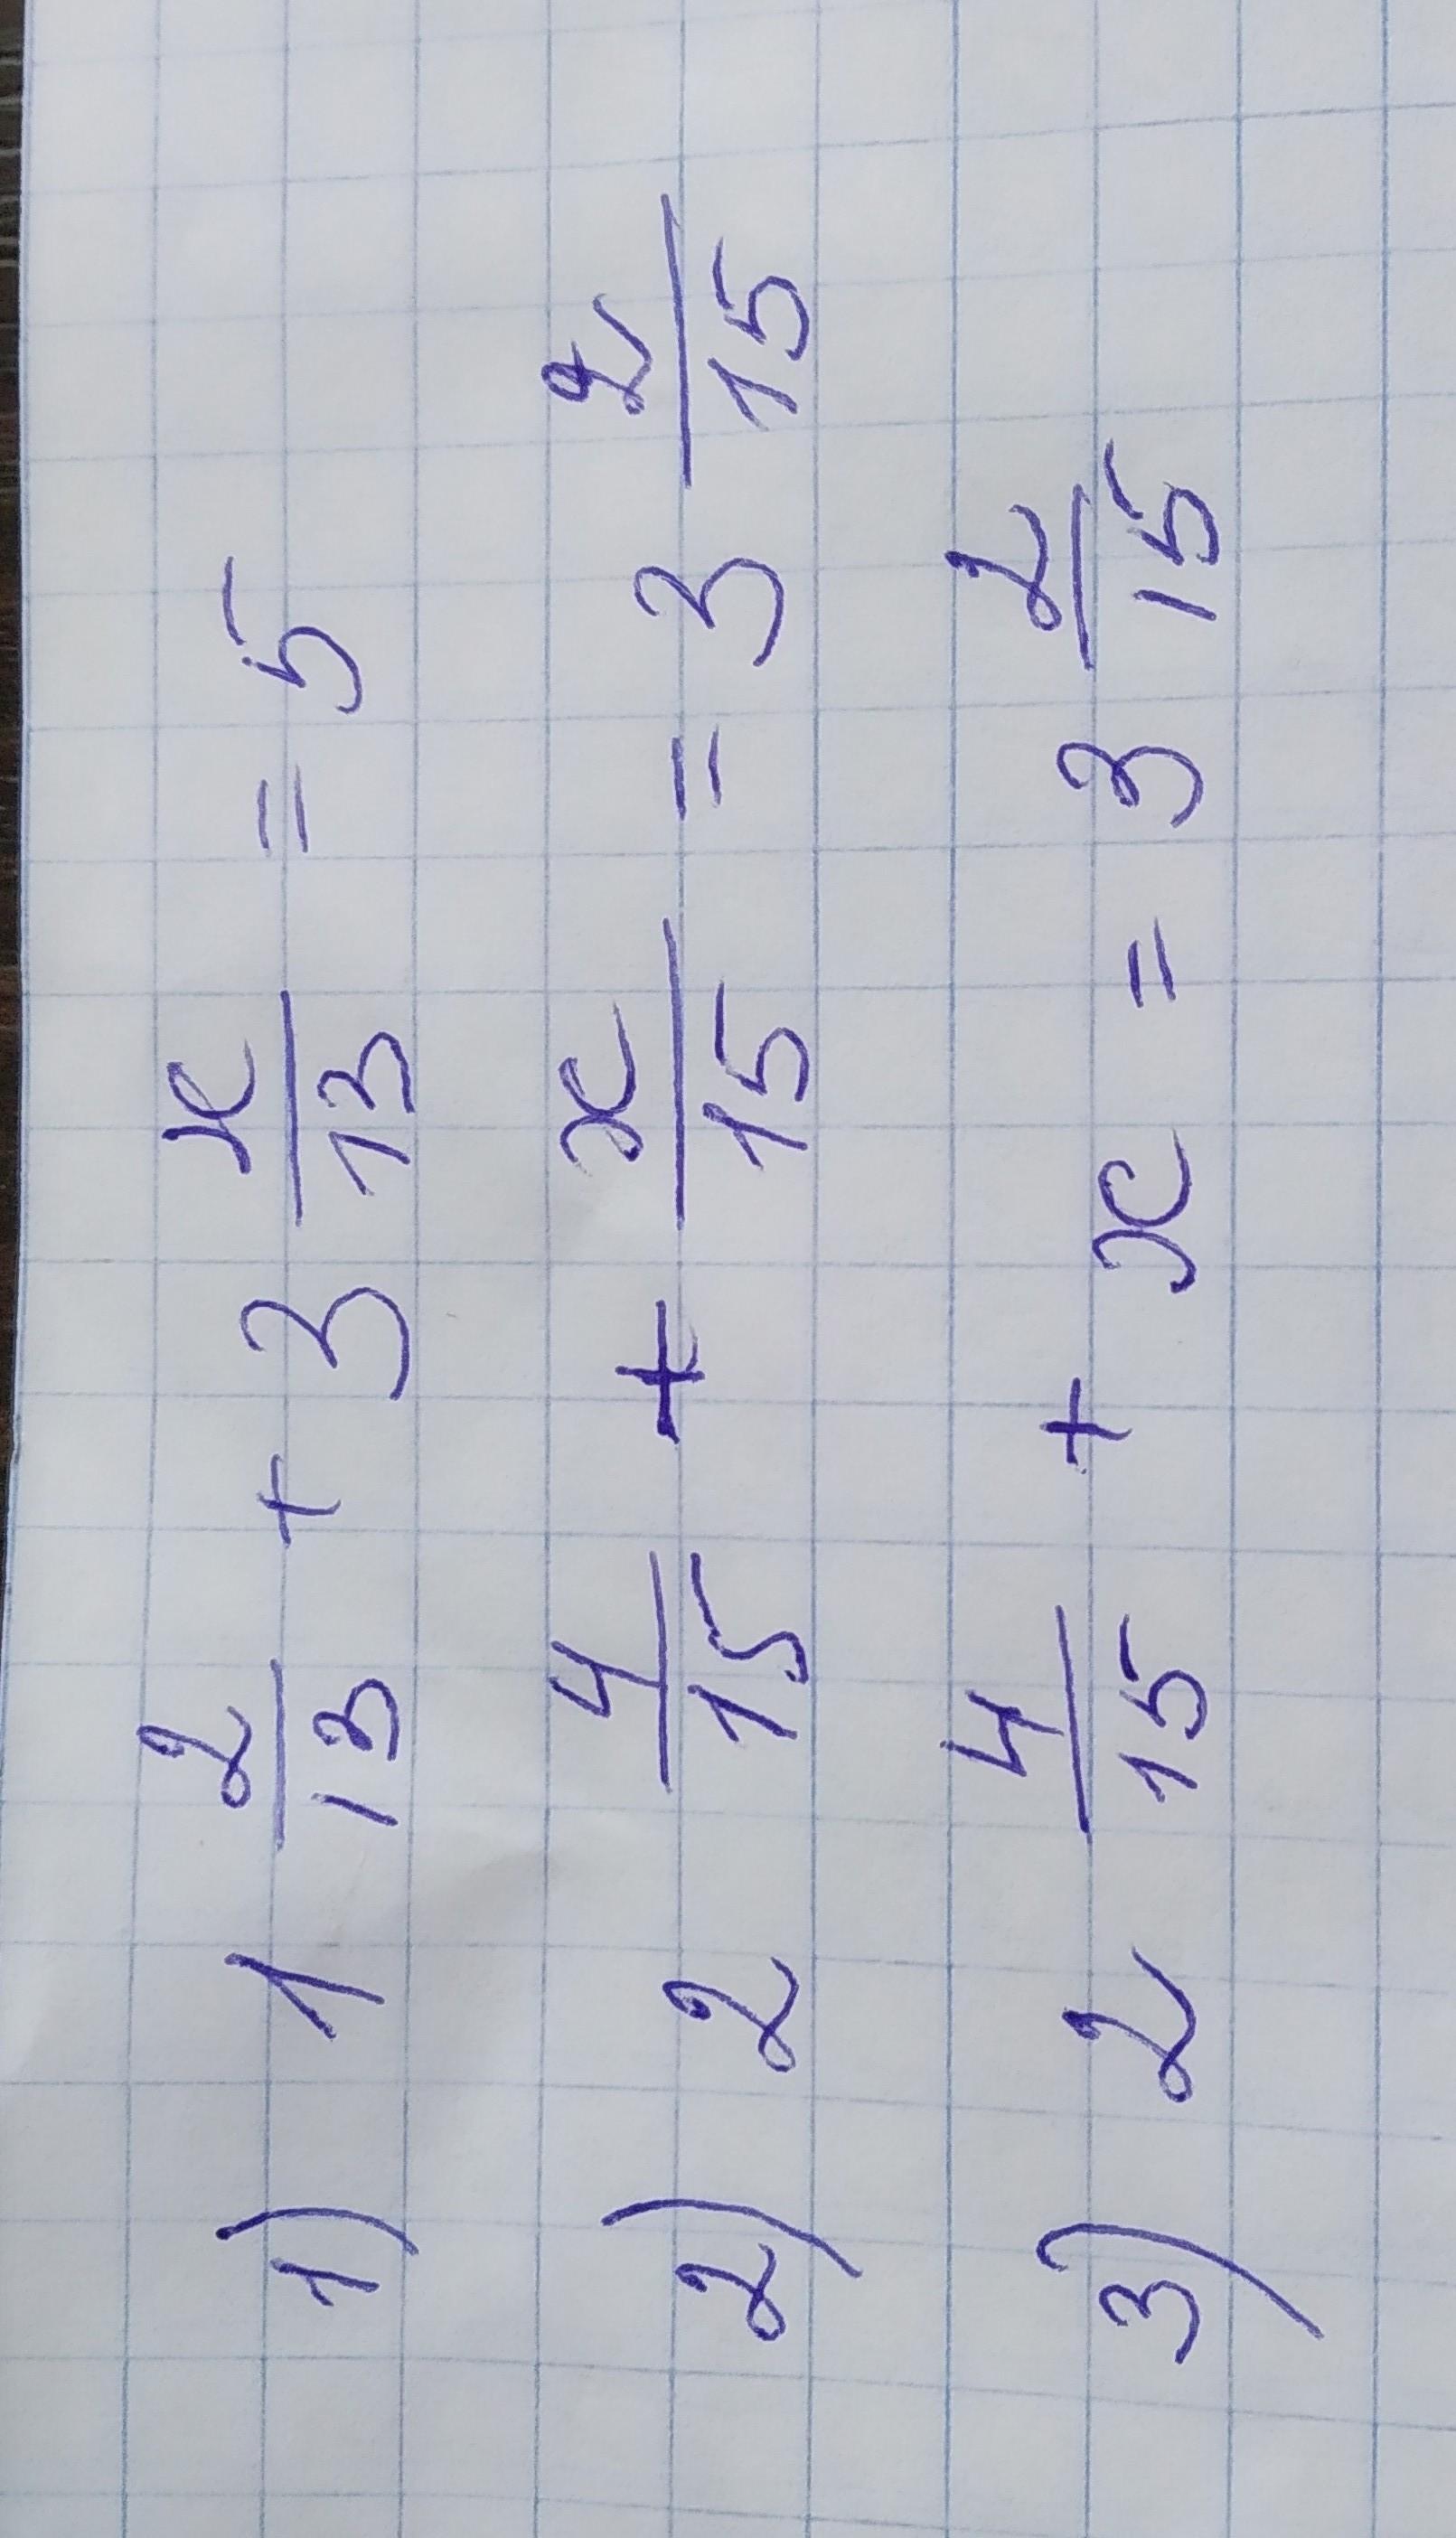 1) 1 2/13 + 3 x/13 = 5
2) 2 4/15 + x/15 = 3 2/15
3) 2 4/15 + x = 3 2/15